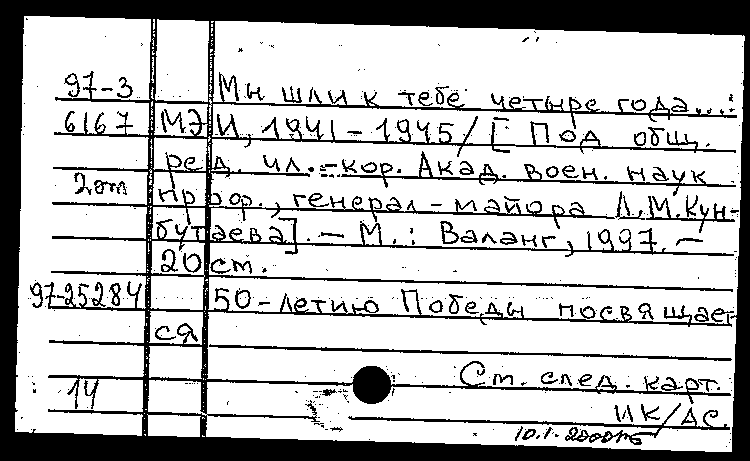 97-3 Мы шли к тебе четыре года...:
6167 МЭИ, 1941-1945/[Под общ.
ред. чл.-кор. Акад. воен. наук
2от проф., генерал-майора Л.М.Кун-
бутаева]. - М.: Валанг, 1997. -
20 см.
97-25284 50-летию Победы посвящает-
ся
См. след. карт.
14
ИК/АС.
10.1.2000